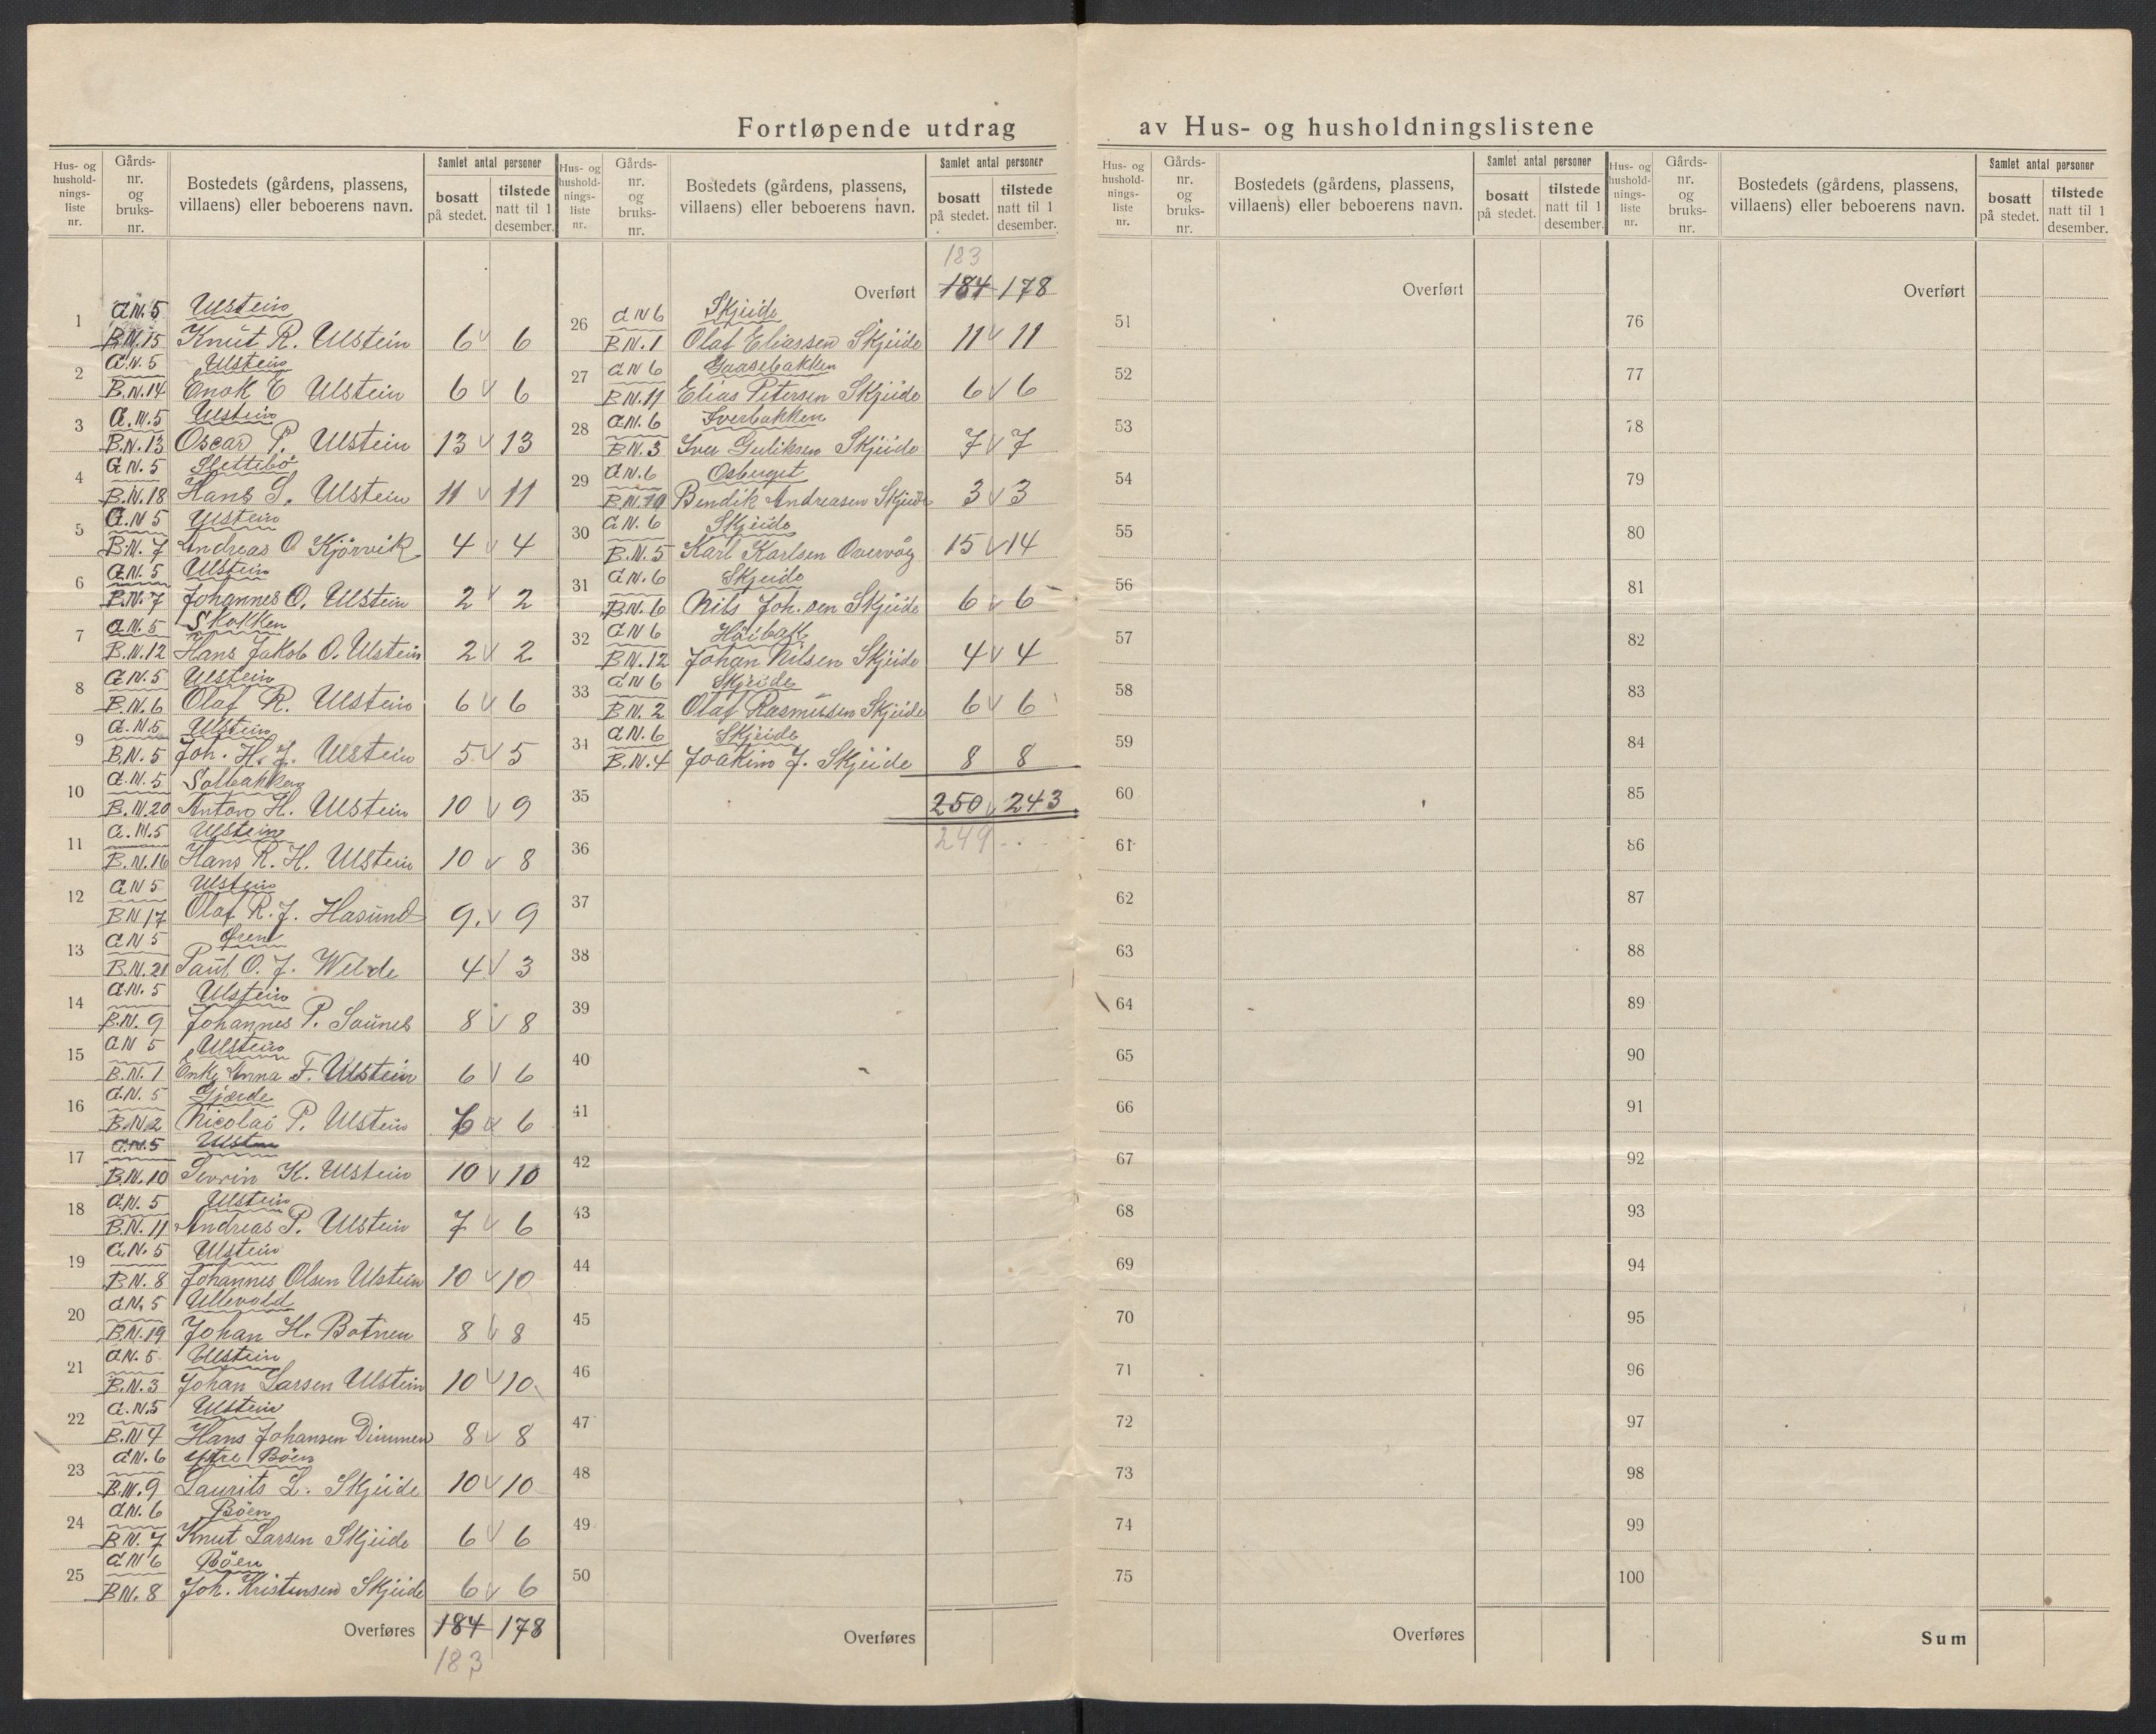 Fortløpende utdrag av Hus- og husholdningslistene
Hus- og husholdningsliste nr. | Gårdsnr. og bruksnr. | Bostedets (gårdens, plassens, villaens) eller beboerens navn. | Samlet antal personer | bosatt på stedet. | tilstede natt til 1 desember.
1 G.N. 5 Ulstein
B.N. 15 Knut R. Ulstein 6 v 6
2 G.N. 5 Ulstein
B.N. 14 Enok E Ulstein 6 v 6
3 G.N. 5 Ulstein
B.N. 13 Oscar P. Ulstein 13 v 13
4 G.N. 5 Slettebö
B.N. 18 Hans S. Ulstein 11 v 11
5 G.N. 5 Ulstein
B.N. 7 Andreas O Kjörvik 4 v 4
6 G.N. 5 Ulstein
B.N. 7 Johannes O. Ulstein 2 v 2
7 G.N. 5 Skokken
B.N. 12 Hans Jakob O. Ulstein 2 v 2
8 G.N. 5 Ulstein
B.N. 6 Olaf R. Ulstein 6 v 6
9 G.N. 5 Ulstein
B.N. 5 Joh. H. J. Ulstein 5 v 5
10 G.N. 5 Solbakken
B.N. 20 Anton H. Ulstein 10 v 9
11 G.N. 5 Ulstein
B.N. 16 Hans R. H. Ulstein 10 v 8
12 G.N 5 Ulstein
B.N 17 Olaf R. J. Hasund 9. v 9
13 G.N 5
B.N. 21 Paul O. J. Welde 4 v 3
14 G.N. 5 Ulstein
B.N. 9 Johannes P. Saunes 8 v 8
15 G.N 5 Ulstein
B.N. 1 Enke Anna F. Ulstein 6 v 6
16 G.N. 5 Gjærde
B.N. 2 Nicolai P. Ulstein 6 v 6
17 G.N. 5 Ulstein
B.N. 10 Sevrin K. Ulstein 10 v 10
18 G.N. 5 Ulstein
B.N. 11 Andreas P. Ulstein 7 v 6
19 G.N. 5 Ulstein
B.N. 8 Johannes Olsen Ulstein 10 v 10
20 G.N. 5 Ullevold
B.N. 19 Johan H. Botnen 8 v 8
21 G.N. 5 Ulstein
B.N. 3 Johan Larsen Ulstein 10 v 10
22 G.N. 5 Ulstein
B.N 4 Hans Johansen Dimmen 8 v 8
23 G.N. 6 Ytre Böen
B.N. 9 Laurits L. Skjeide 10 v 10
24 G.N. 6 Böen
B.N. 7 Knut Larsen Skjeide 6 v 6
25 G.N 6 Böen
B.N. 8 Joh. Kristensen Skjeide 6 v 6
Overføres 184 178
183
Hus- og husholdningsliste nr. | Gårdsnr. og bruksnr. | Bostedets (gårdens, plassens, villaens) eller beboerens navn. | Samlet antal personer | bosatt på stedet. | tilstede natt til 1 desember.
183
Overført 184 178
26 G N 6 Skjeide
B N. 1 Olaf Eliassen Skjeide 11 v 11
27 G N 6 Gaasebakken
B N. 11 Elias Petersen Skjeide 6 v 6
28 G N. 6 Iverbakken
B N. 3 Iver Guliksen Skjeide 7 v 7
29 G.N. 6 Osberget
B.N. 10 Bendik Andreasen Skjeide 3 v 3
30 G N. 6 Skjeide
B.N. 5 Karl Karlsen Overvåg 15 v 14
31 G N. 6 Skjeide
B N. 6 Nils Joh.sen Skjeide 6 v 6
32 G N 6 Höibakk
B N. 12 Johan Nilsen Skjeide 4 v 4
33 G N 6 Skjeide
B N. 2 Olaf Rasmussen Skjeide 6 v 6
34 G N. 6 Skjeide
B.N. 4 Joakim J. Skjeide 8 8
35 250 v 243
36 249
37
38
39
40
41
42
43
44
45
46
47
48
49
50
Overføres
Hus- og husholdningsliste nr. | Gårdsnr. og bruksnr. | Bostedets (gårdens, plassens, villaens) eller beboerens navn. | Samlet antal personer | bosatt på stedet. | tilstede natt til 1 desember.
Overført
51
52
53
54
55
56
57
58
59
60
61
62
63
64
65
66
67
68
69
70
71
72
73
74
75
Overføres
Hus- og husholdningsliste nr. | Gårdsnr. og bruksnr. | Bostedets (gårdens, plassens, villaens) eller beboerens navn. | Samlet antal personer | bosatt på stedet. | tilstede natt til 1 desember.
Overført
76
77
78
79
80
81
82
83
84
85
86
87
88
89
90
91
92
93
94
95
96
97
98
99
100
Sum